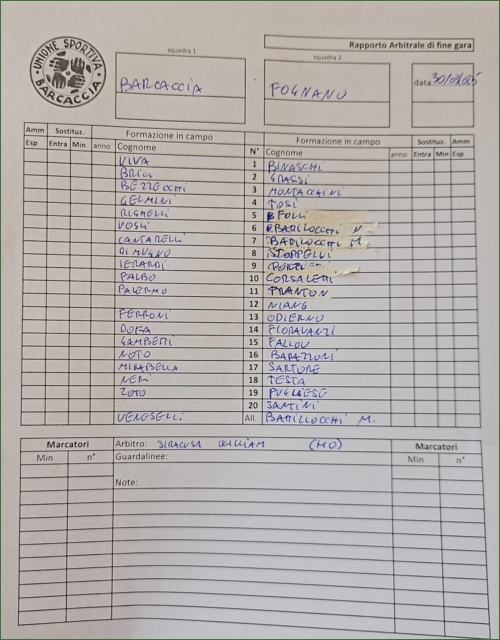 UNIONE SPORTIVA BARCACCIA
Rapporto Arbitrale di fine gara
squadra 1
squadra 2
BARCACCIA
FOGNANO
data
Amm Sostituz. Formazione in campo N° Formazione in campo Sostituz. Amm
Esp Entra Min anno Cognome Cognome anno Entra Min Esp
VIVA 1 BINASCHI
BRIGI 2 GRASSI
BEZZECCHI 3 MONTACCHINI
GELMINI 4 TOSI
RIGHELLI 5 FOLLI
VOSLI 6 BARILLOCCHI N
CANTARELLI 7 BARILLOCCHI M.
DI MUGNO 8 STOPPELLI
IERARDI 9
PALBO 10 CORSALETTI
PALERMO 11 FRANTON
12 NIANG
FERRONI 13 ODIERNO
DOKA 14 FIORAVANZI
GAMBETTI 15 FALLOU
NOTO 16 BARAZZONI
MIRABELLA 17 SARTORE
NERI 18 TESTA
ZOTO 19 PUGLIESE
20 SANTINI
VENESELLI All. BARILLOCCHI M.
Marcatori Arbitro: SIRACUSA WILLIAM (MO) Marcatori
Min n° Guardalinee: Min n°
Note: